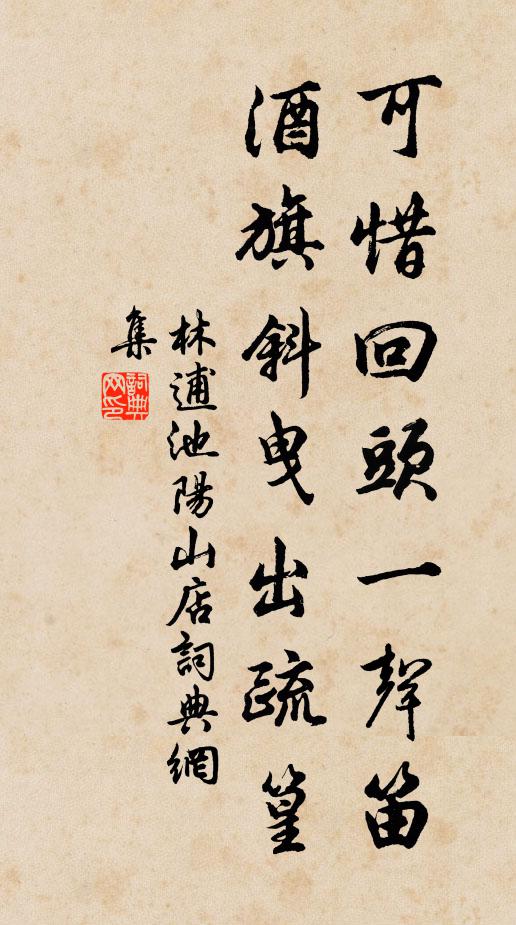 可惜回頭一聲笛
酒旗斜曳出疏篁
林逋池陽山店詞典網
集
詞典
网印